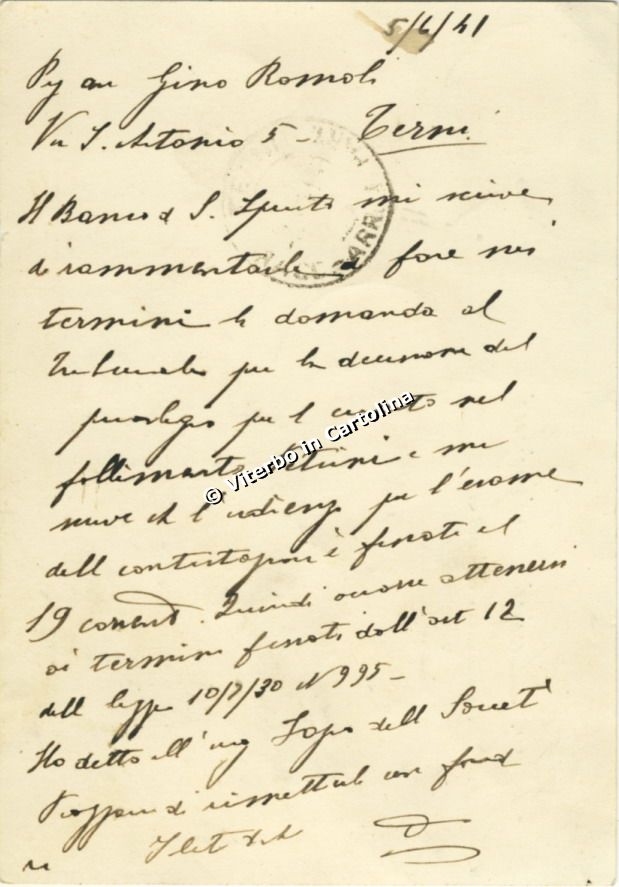 5/6/41
Gino Romoli
Via S. Antonio 5 - Terni
Il Banco di S. Spirito mi scrive
di rammentarle di fare nei
termini la domanda al
Tribunale per la decisione del
privilegio per il credito nel
fallimento e mi
scrive che l'udienza per l'esame
delle contestazioni è fissata al
19 corrente. Quindi occorre attenersi
ai termini fissati dall'art 12
della legge 10/7/30 N 995 -
Ho detto all'ing della Società
di rimetterle
© Viterbo in Cartolina